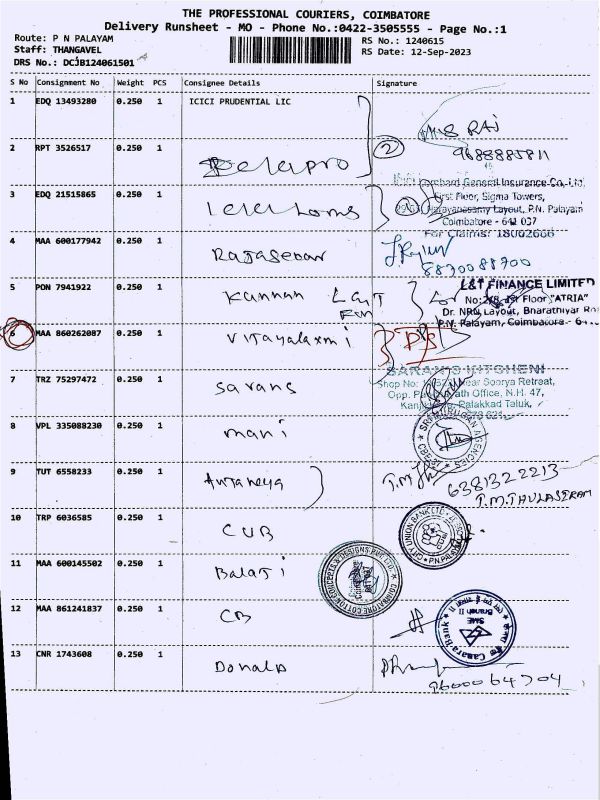 THE PROFESSIONAL COURIERS, COIMBATORE
Delivery Runsheet - MO - Phone No.:0422-3505555 - Page No.:1
Route: P N PALAYAM
RS No.: 1240615
Staff: THANGAVEL
RS Date: 12-Sep-2023
DRS No.: DCJB124061501
S No Consignment No Weight PCS Consignee Details Signature
1 EDQ 13493280 0.250 1 ICICI PRUDENTIAL LIC
RAJ
2 RPT 3526517 0.250 1
2
9688885811
Lombard General Insurance Co. Ltd.
3 EDQ 21515865 0.250 1
First Floor, Sigma Towers,
Narayanasamy Layout, P.N. Palayam
Coimbatore - 641 037
For Claims: 18002666
4 MAA 600177942 0.250 1 Rajasekar
8870088700
5 PON 7941922 0.250 1 Kannan L&T
L&T FINANCE LIMITED
Floor "ATRIA"
Dr. NRN Layout, Bharathiyar
P.N. Palayam, Coimbatore
6 MAA 860262087 0.250 1 Vijayalaxmi
SARAN'S KITCHEN
7 TRZ 75297472 0.250 1 Sarans
Shop No: Near Soorya Retreat,
Opp. Office, N.H. 47,
Palakkad Taluk,
8 VPL 335088230 0.250 1 Mani
SRI MURUGAN AGENCIES
9 TUT 6558233 0.250 1
6381322213
T.M.THULASIRAM
10 TRP 6036585 0.250 1 CUB
CITY UNION BANK LTD
11 MAA 600145502 0.250 1 Balaji
COIMBATORE COTTON CONCEPTS & DESIGNS PVT. LTD.
12 MAA 861241837 0.250 1 CB
Canara Bank
SME Branch
13 CNR 1743608 0.250 1 Donald
9600064704